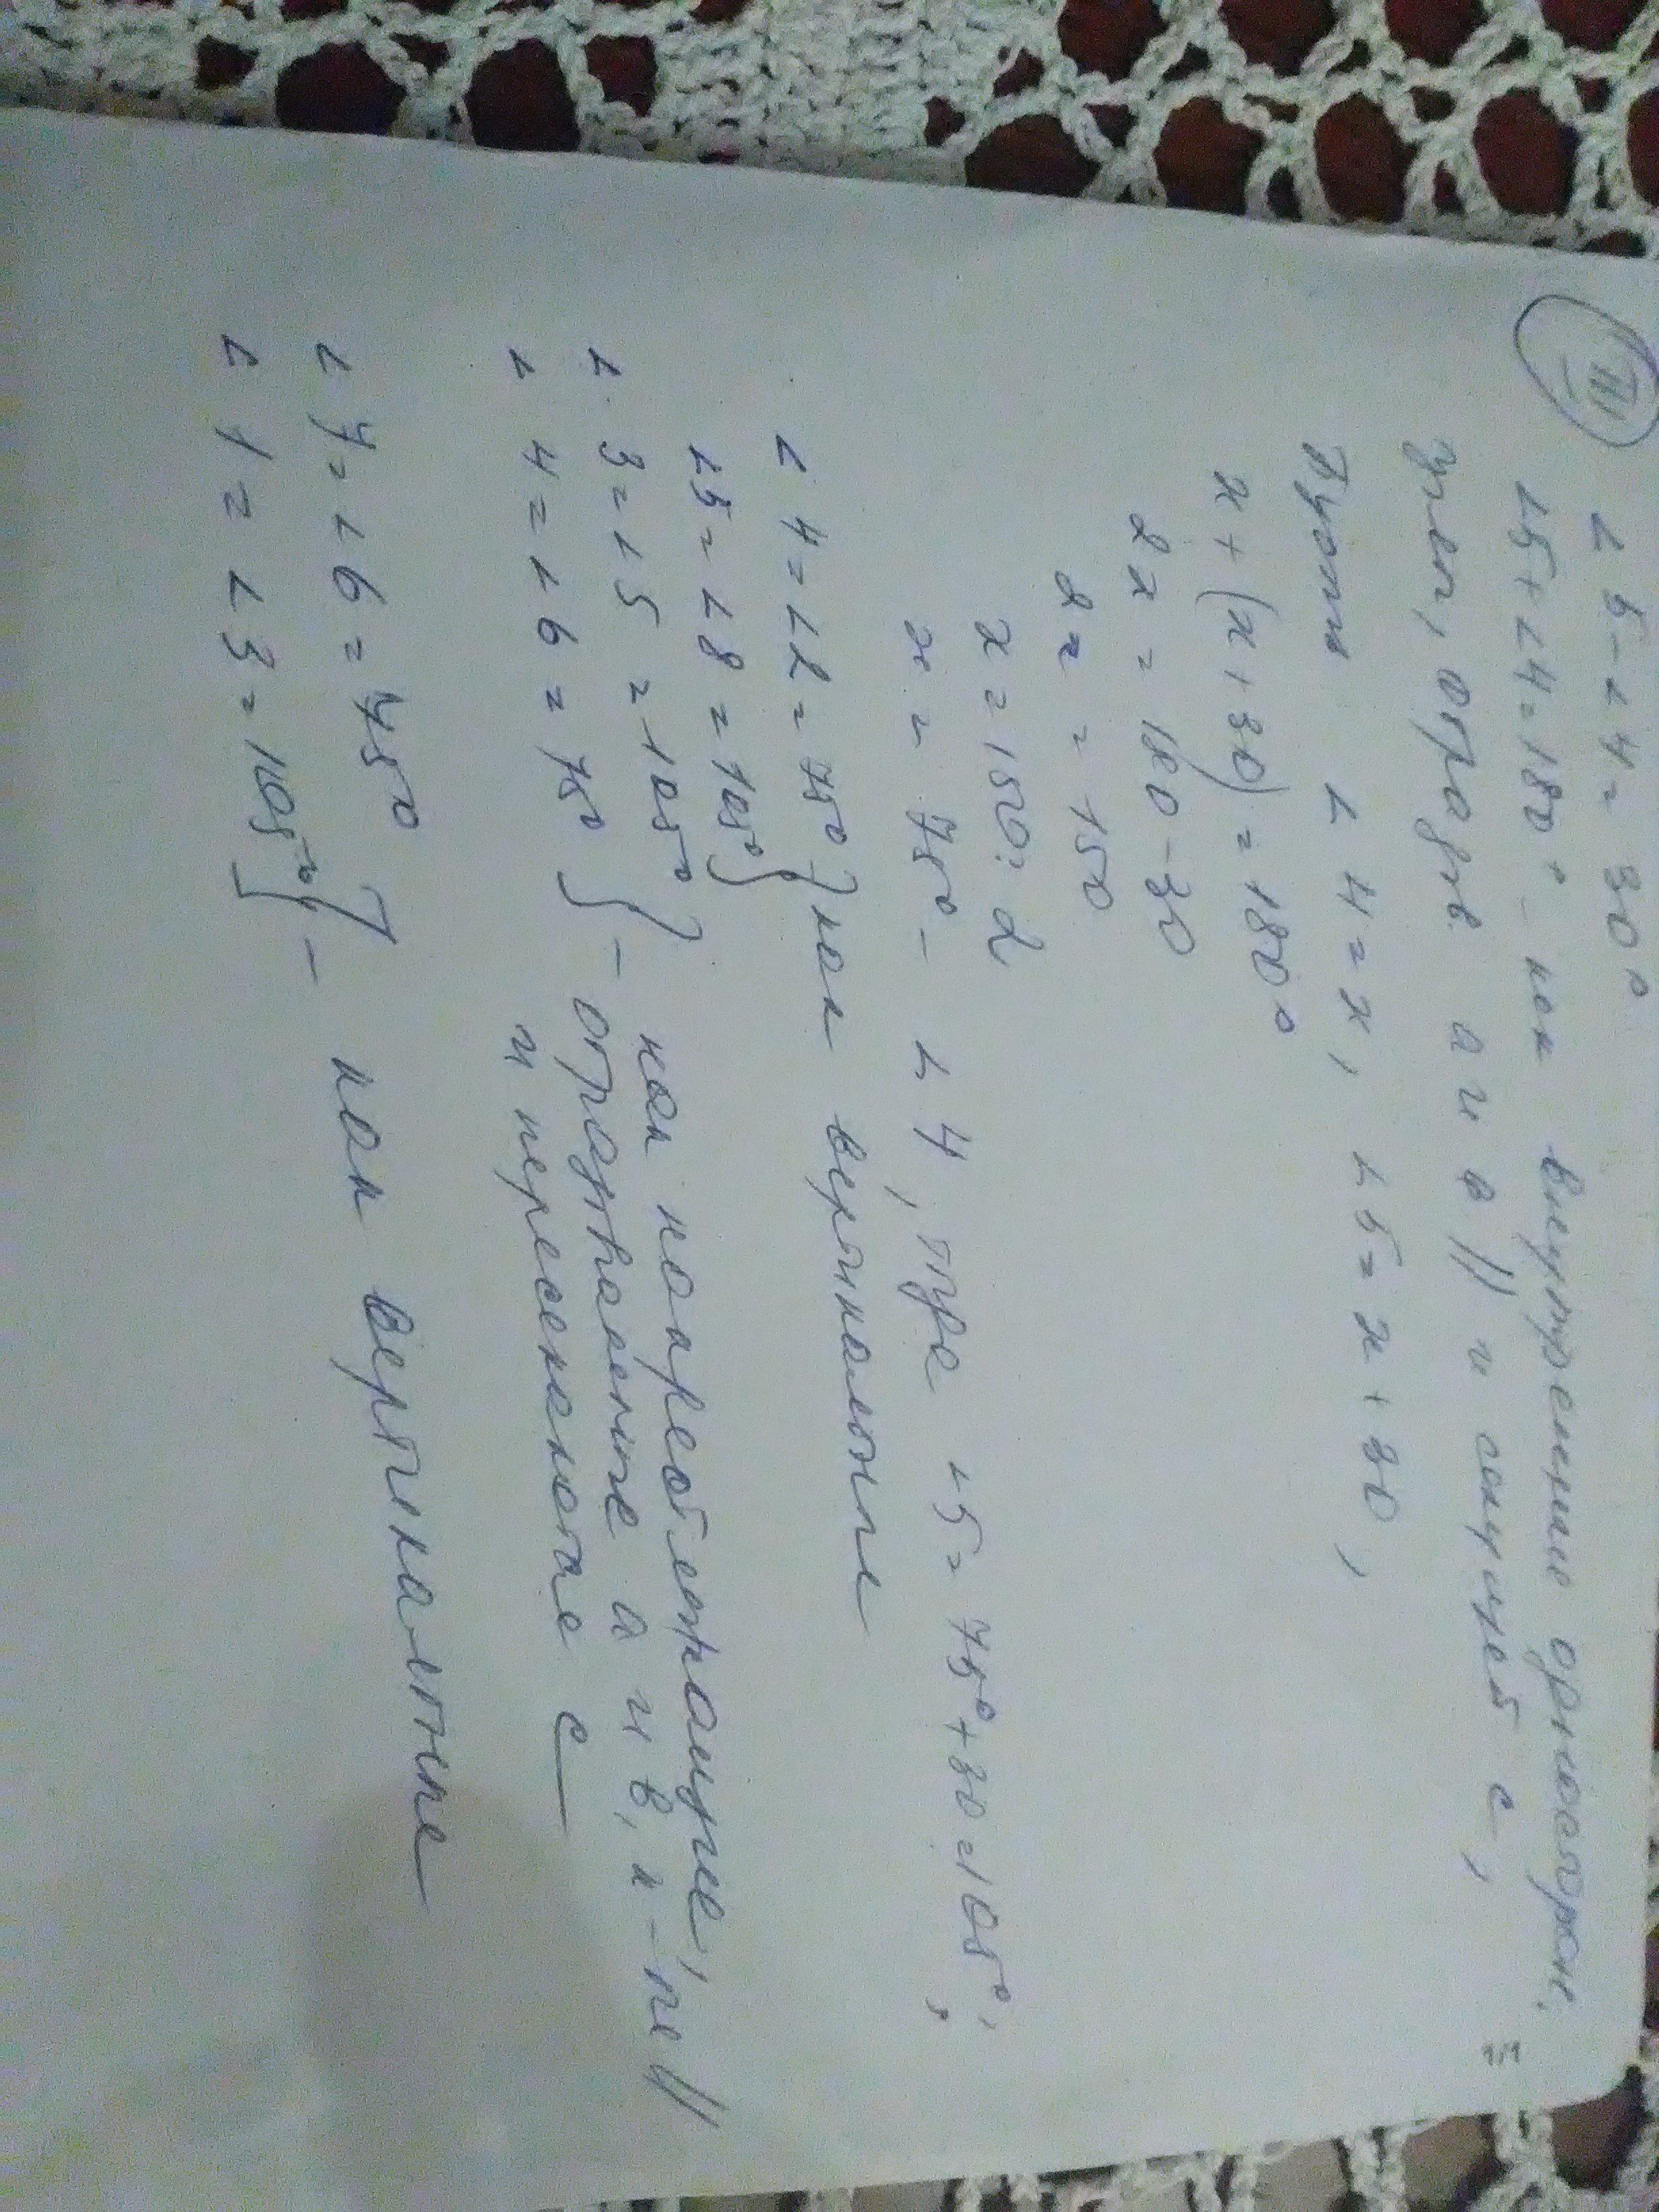 III
∠5-∠4=30°
∠5+∠4=180° - как внутренние односторон.
углы, образв. a и в || и секущей с,
Пусть ∠4=x, ∠5=x+30,
x+(x+30)=180°
2x=180-30
2x=150
x=150:2
x=75° - ∠4, тогда ∠5=75°+30=105°;
∠4=∠2=75° } как вертикальные
∠5=∠8=105° }
∠3=∠5=105° } - как накрест лежащие,
∠4=∠6=75° } образованные a и в, к-ые ||
и пересекаются с
∠7=∠6=75° } - как вертикальные
∠1=∠3=105° }